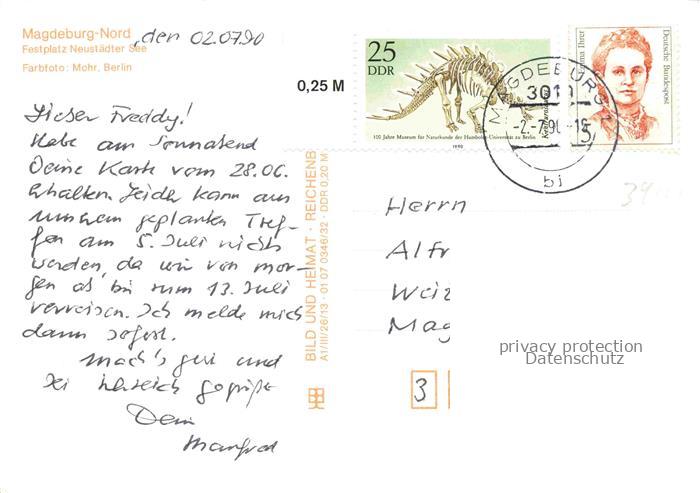 Magdeburg-Nord
Festplatz Neustädter See
Farbfoto: Mohr, Berlin
, den 02.07.90
0,25 M
Lieber Freddy!
Habe am Sonnabend
Deine Karte vom 28.06.
erhalten. Leider kann aus
unserem geplanten Tref-
fen am 5. Juli nichts
werden, da wir von mor-
gen ab bis zum 13. Juli
verreisen. Ich melde mich
dann sofort.
Mach's gut und
sei herzlich gegrüßt
Dein
Manfred
BILD UND HEIMAT · REICHENB
A1/III/26/13 · 01 07 0346/32 · DDR 0,20 M
25
DDR
100 Jahre Museum für Naturkunde der Humboldt-Universität zu Berlin
1990
Emma Ihrer
Deutsche Bundespost
MAGDEBURG 1
3010
-2.-7.90-15
bj
Herrn
Alfr
Weiz
Mag
3
privacy protection
Datenschutz